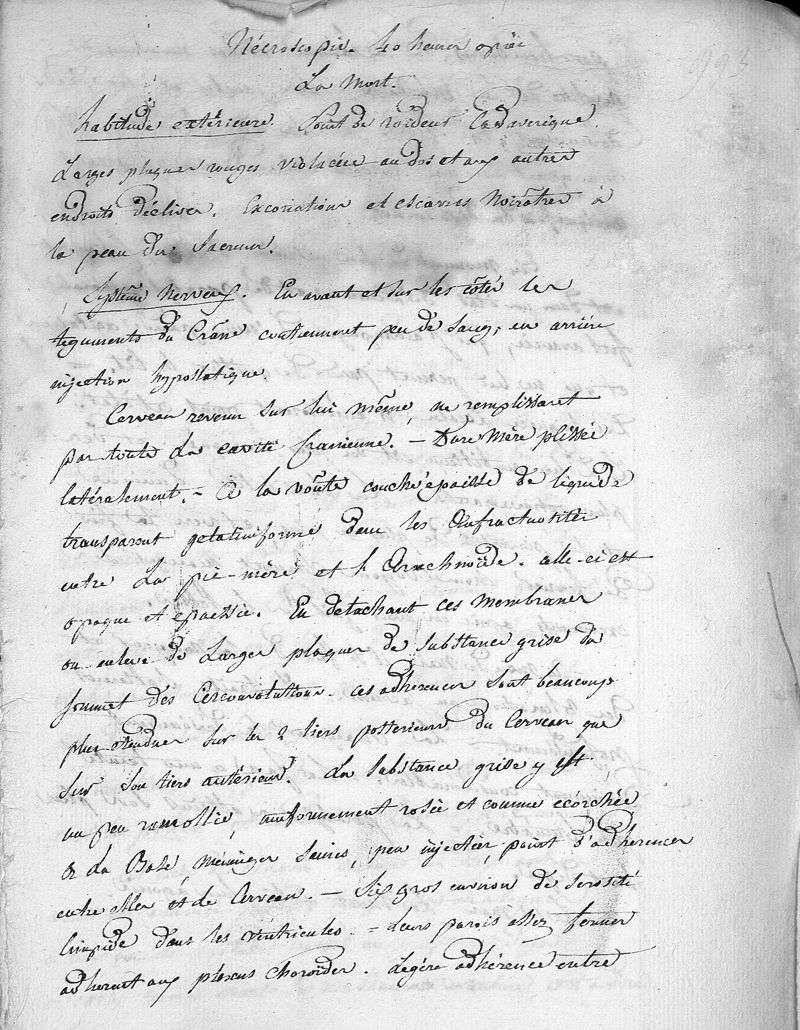 Nécroscopie. 40 heures après
La Mort.
habitude extérieure. Point de roideur Cadaverique.
Larges plaques rouges violacées au dos et aux autres
endroits déclives. Excoriations et escarres Noirâtres à
la peau du Sacrum.
Système Nerveux. En avant et sur les côtés les
teguments du Crâne contiennent peu de Sang, en arrière
injection hypostatique.
Cerveau revenu sur lui même, ne remplissant
par toute La cavité Cranienne. – Dure Mère plissée
latéralement. – à la voûte couche épaisse de liquide
transparent gelatiniforme dans les Anfractuosités
entre La pie-mère et l'Arachnoïde. celle-ci est
opaque et épaissie. En détachant ces Membranes
on enleve de Larges plaques de substance grise du
sommet des Circonvolutions. ces adherences sont beaucoup
plus étendues sur les 2 tiers posterieurs du Cerveau que
sur son tiers antérieur. La substance grise y est
un peu ramollie, uniformement rosée et comme écorchée
à La Base, Méninges saines, peu injectées, point d'adhérences
entre elles et le Cerveau. – Six gros environ de serosité
limpide dans les ventricules. – Leurs parois assez fermes
adherent aux plexus choroïdes. Légère adhérence entre